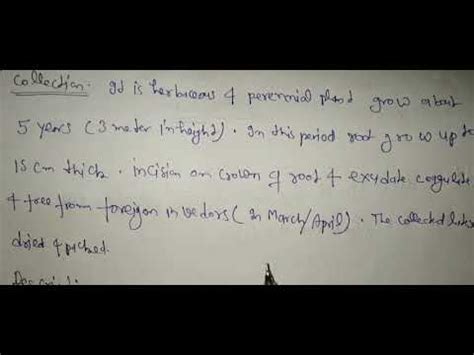 Collection. It is herbaceous & perennial plant grow about
5 years (3 meter in height). In this period root grow up to
15 cm thick. incision on crown of root & exudate
& free from foreign (in March/April). The collected
dried & packed.